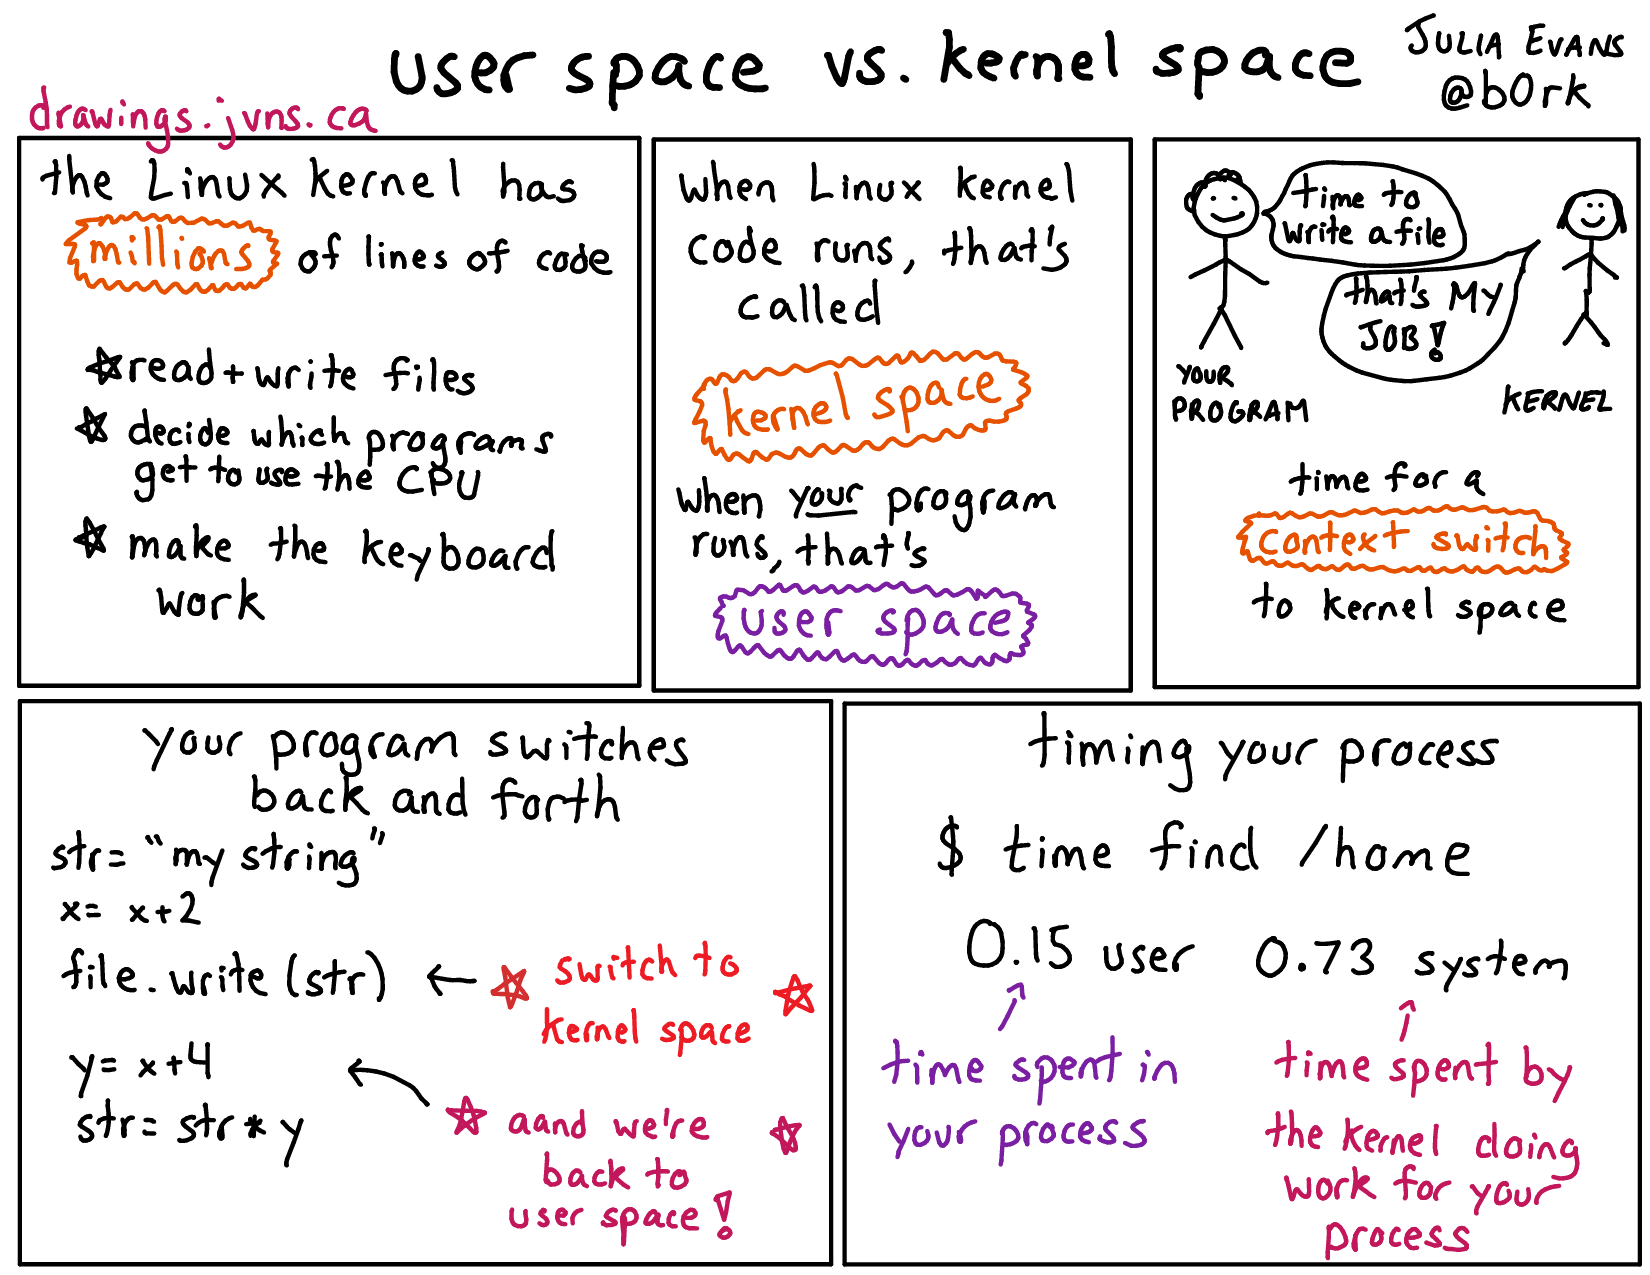 user space vs. kernel space
JULIA EVANS
@b0rk
drawings.jvns.ca
the Linux kernel has
millions of lines of code
read + write files
decide which programs
get to use the CPU
make the keyboard
work
when Linux kernel
code runs, that's
called
kernel space
when your program
runs, that's
user space
time to
write a file
that's MY
JOB!
YOUR
PROGRAM
KERNEL
time for a
context switch
to kernel space
your program switches
back and forth
str= "my string"
x= x+2
file.write(str)
switch to
kernel space
y= x+4
str= str* y
aand we're
back to
user space!
timing your process
$ time find /home
0.15 user 0.73 system
time spent in
your process
time spent by
the kernel doing
work for your
process